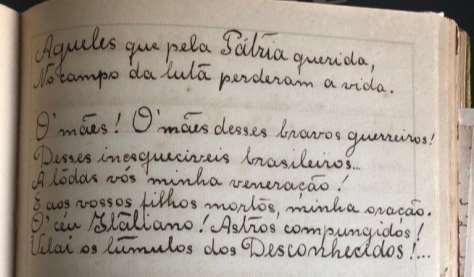 Aqueles que pela Pátria querida,
No campo da lutã perderam a vida.
O'mães! O'mães desses bravos guerreiros!
Desses inesqueciveis brasileiros...
A tôdas vós minha veneração!
E aos vossos filhos mortos, minha oração.
O' céu Italiano! Astros compungidos!
Velai os túmulos dos Desconhecidos!...